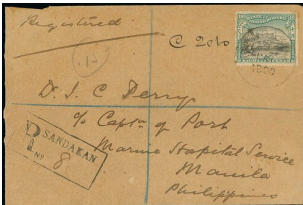 Registered
C 2010
Dr. I. C. Derry
c/o Captn of Port
Marine Hospital Service
Manila
Philippines
R SANDAKAN
No 8